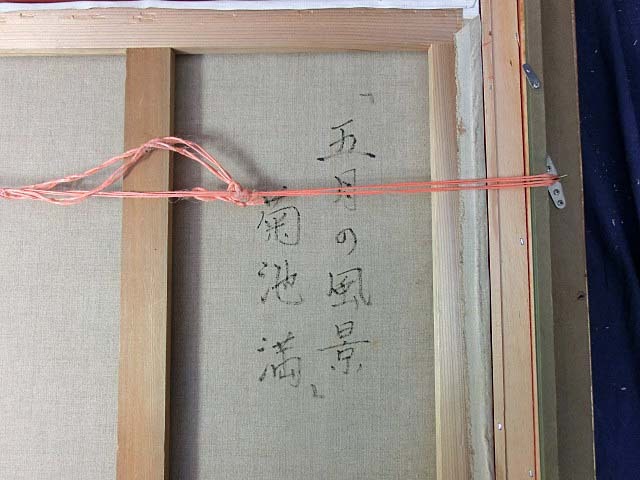 「五月の風景」
菊池満